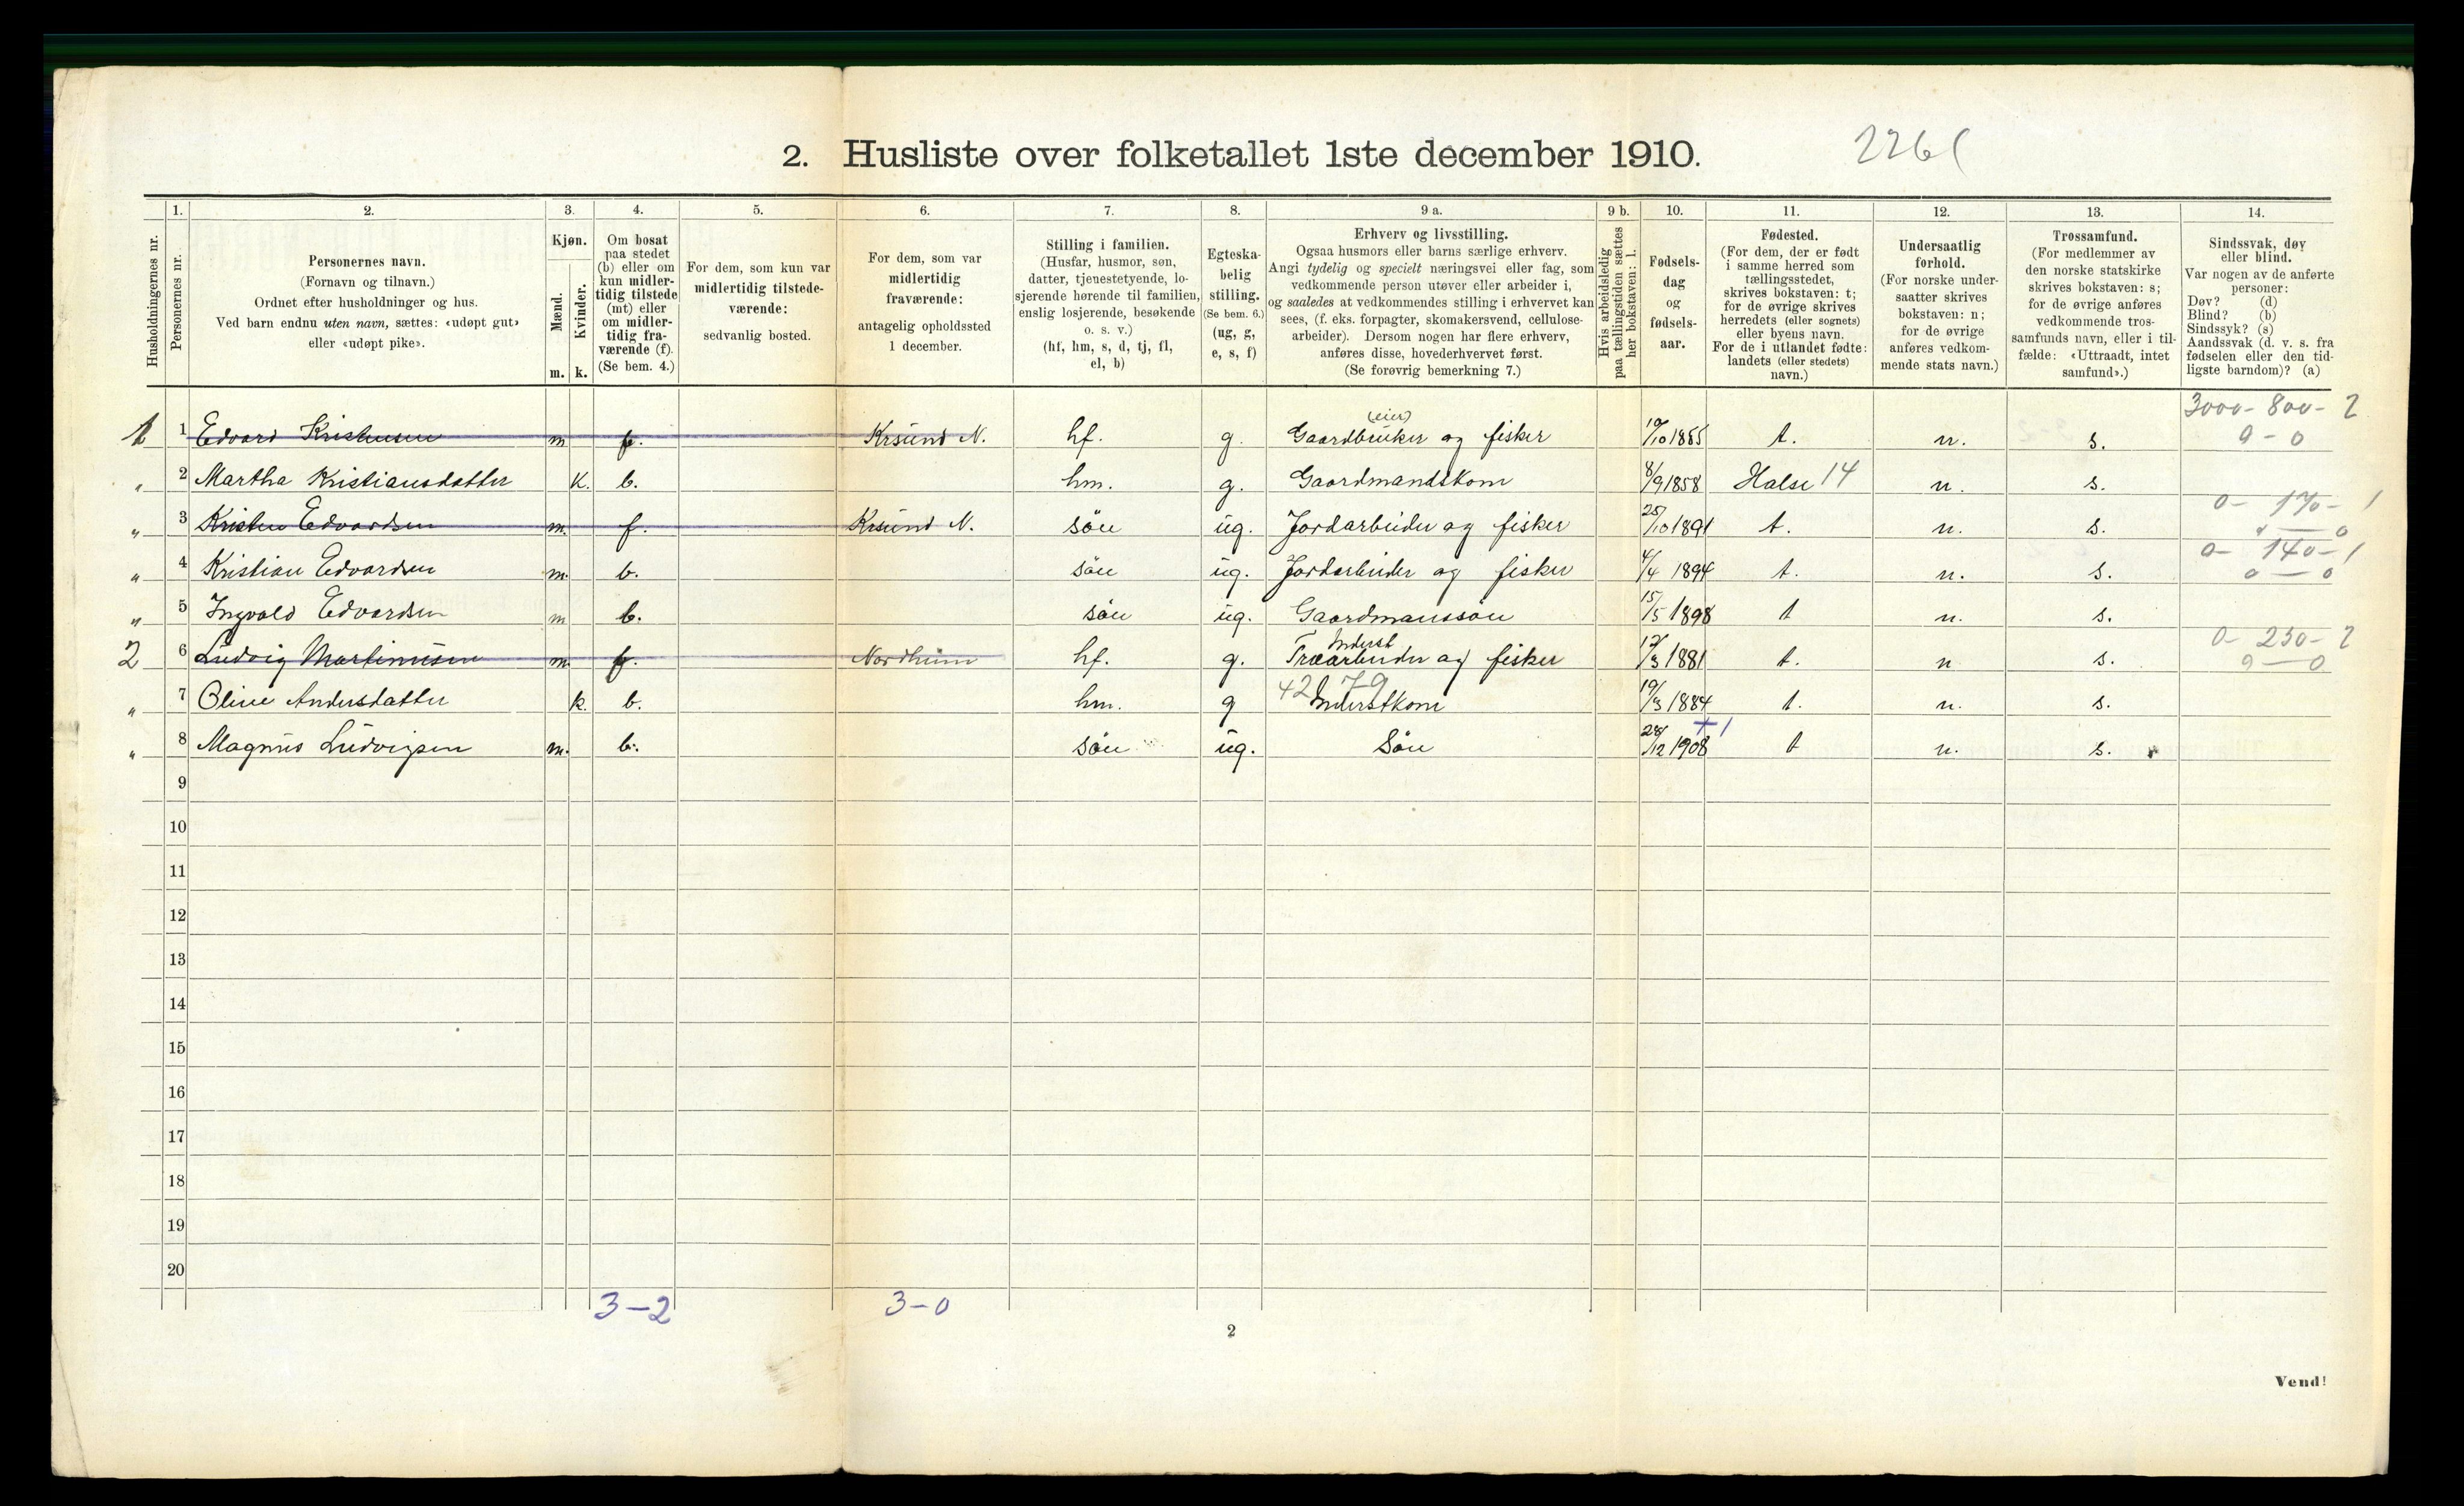 2. Husliste over folketallet 1ste december 1910.
Husholdningernes nr.
1.
Personernes nr.
2.
Personernes navn.
(Fornavn og tilnavn.)
Ordnet efter husholdninger og hus.
Ved barn endnu uten navn, sættes: «udøpt gut»
eller «udøpt pike».
3.
Kjøn.
Mænd.
Kvinder.
m. k.
4.
Om bosat
paa stedet
(b) eller om
kun midler-
tidig tilstede
(mt) eller
om midler-
tidig fra-
værende (f).
(Se bem. 4.)
5.
For dem, som kun var
midlertidig tilstede-
værende:
sedvanlig bosted.
6.
For dem, som var
midlertidig
fraværende:
antagelig opholdssted
1 december.
7.
Stilling i familien.
(Husfar, husmor, søn,
datter, tjenestetyende, lo-
sjerende hørende til familien,
enslig losjerende, besøkende
o. s. v.)
(hf, hm, s, d, tj, fl,
el, b)
8.
Egteska-
belig
stilling.
(Se bem. 6.)
(ug, g,
e, s, f)
9 a.
Erhverv og livsstilling.
Ogsaa husmors eller barns særlige erhverv.
Angi tydelig og specielt næringsvei eller fag, som
vedkommende person utøver eller arbeider i,
og saaledes at vedkommendes stilling i erhvervet kan
sees, (f. eks. forpagter, skomakersvend, cellulose-
arbeider). Dersom nogen har flere erhverv,
anføres disse, hovederhvervet først.
(Se forøvrig bemerkning 7.)
9 b.
Hvis arbeidsledig
paa tællingstiden sættes
her bokstaven: l.
10.
Fødsels-
dag
og
fødsels-
aar.
11.
Fødested.
(For dem, der er født
i samme herred som
tællingsstedet,
skrives bokstaven: t;
for de øvrige skrives
herredets (eller sognets)
eller byens navn.
For de i utlandet fødte:
landets (eller stedets)
navn.)
12.
Undersaatlig
forhold.
(For norske under-
saatter skrives
bokstaven: n;
for de øvrige
anføres vedkom-
mende stats navn.)
13.
Trossamfund.
(For medlemmer av
den norske statskirke
skrives bokstaven: s;
for de øvrige anføres
vedkommende tros-
samfunds navn, eller i til-
fælde: «Uttraadt, intet
samfund».)
14.
Sindssvak, døv
eller blind.
Var nogen av de anførte
personer:
Døv? (d)
Blind? (b)
Sindssyk? (s)
Aandssvak (d. v. s. fra
fødselen eller den tid-
ligste barndom)? (a)
3000 - 800 - 2
(eier)
1 1 Edvard Kristensen m f. Krsund N. hf. g. Gaardbruker og fisker 10/10 1855 t. n. s. 9 - 0
" 2 Martha Kristiansdatter k. b. hm. g. Gaardmandskom 8/9 1858 Halse 14 n. s.
0 - 170 - 1
" 3 Kristen Edvardsen m. f. Krsund N. søn ug. Jordarbeider og fisker 25/10 1891 t. n. s.
0 - 140 - 1
" 4 Kristian Edvardsen m. b. søn ug. Jordarbeider og fisker 4/4 1894 t. n. s. 0 — 0
" 5 Ingvald Edvardsen m b. søn ug. Gaardmanssøn 15/5 1898 t n. s.
0 - 230 - 2
Inderst
2 6 Ludvig Martinussen m. f. hf. g. Træarbeider og fisker 12/3 1881 t. n s. 9 — 0
42 79
" 7 Oline Andersdatter k. b. hm. g Inderstkom 19/3 1884 t. n. s.
+ 1
" 8 Magnus Ludvigsen m. b. søn ug. Søn 28/12 1908 t n. s.
9
10
11
12
13
14
15
16
17
18
19
20
3 — 2 3 — 0
2
Vend!